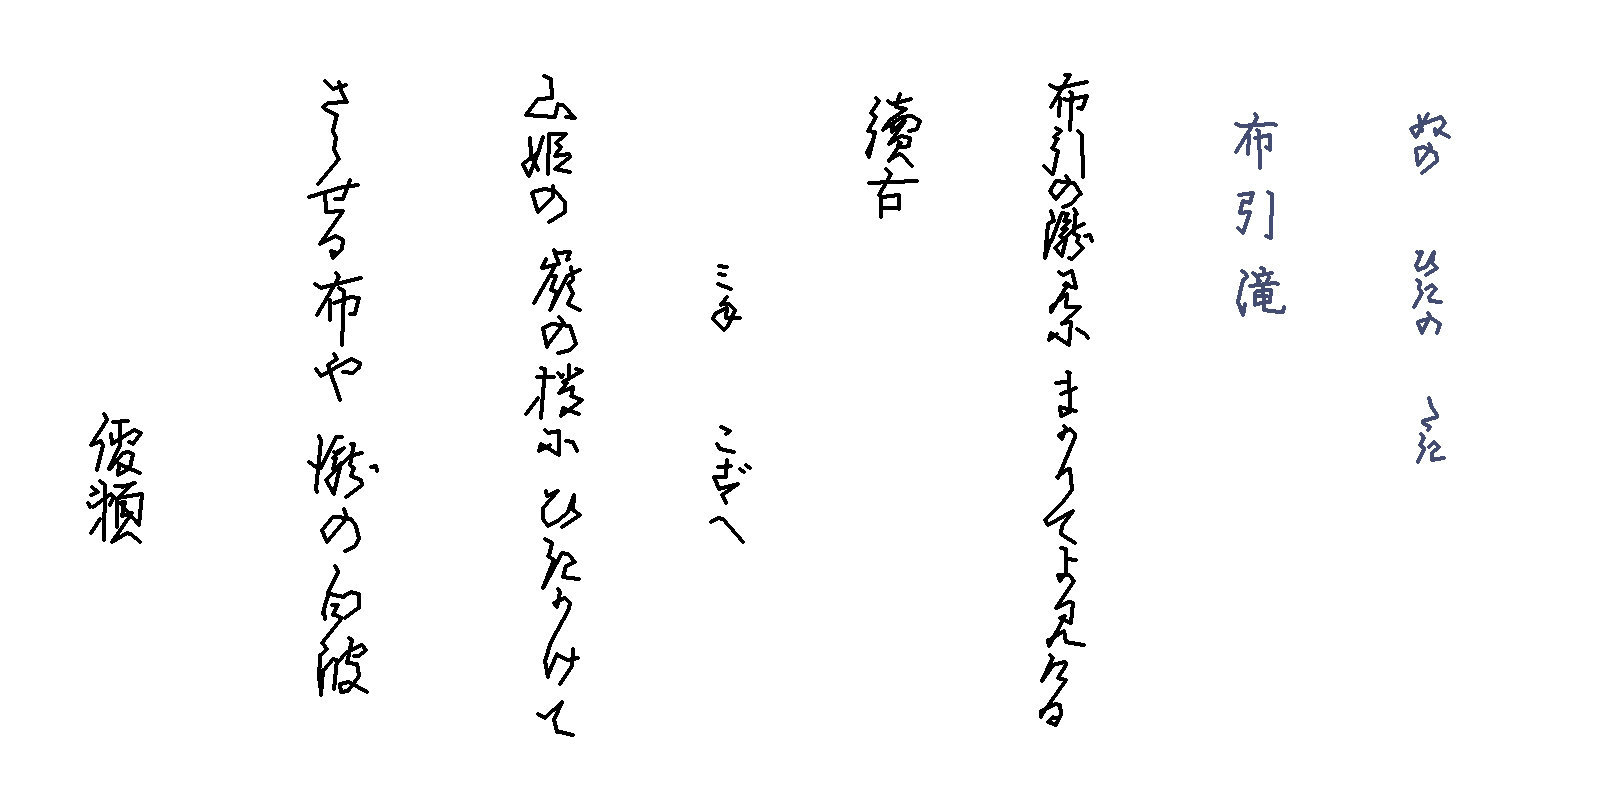 ぬの ひきの たき
布引滝
布引の瀧見に まかりてよみける
續古
みね こずへ
山姫の 嶺の梢に ひきかけて
さらせる布や 瀧の白波
俊頼